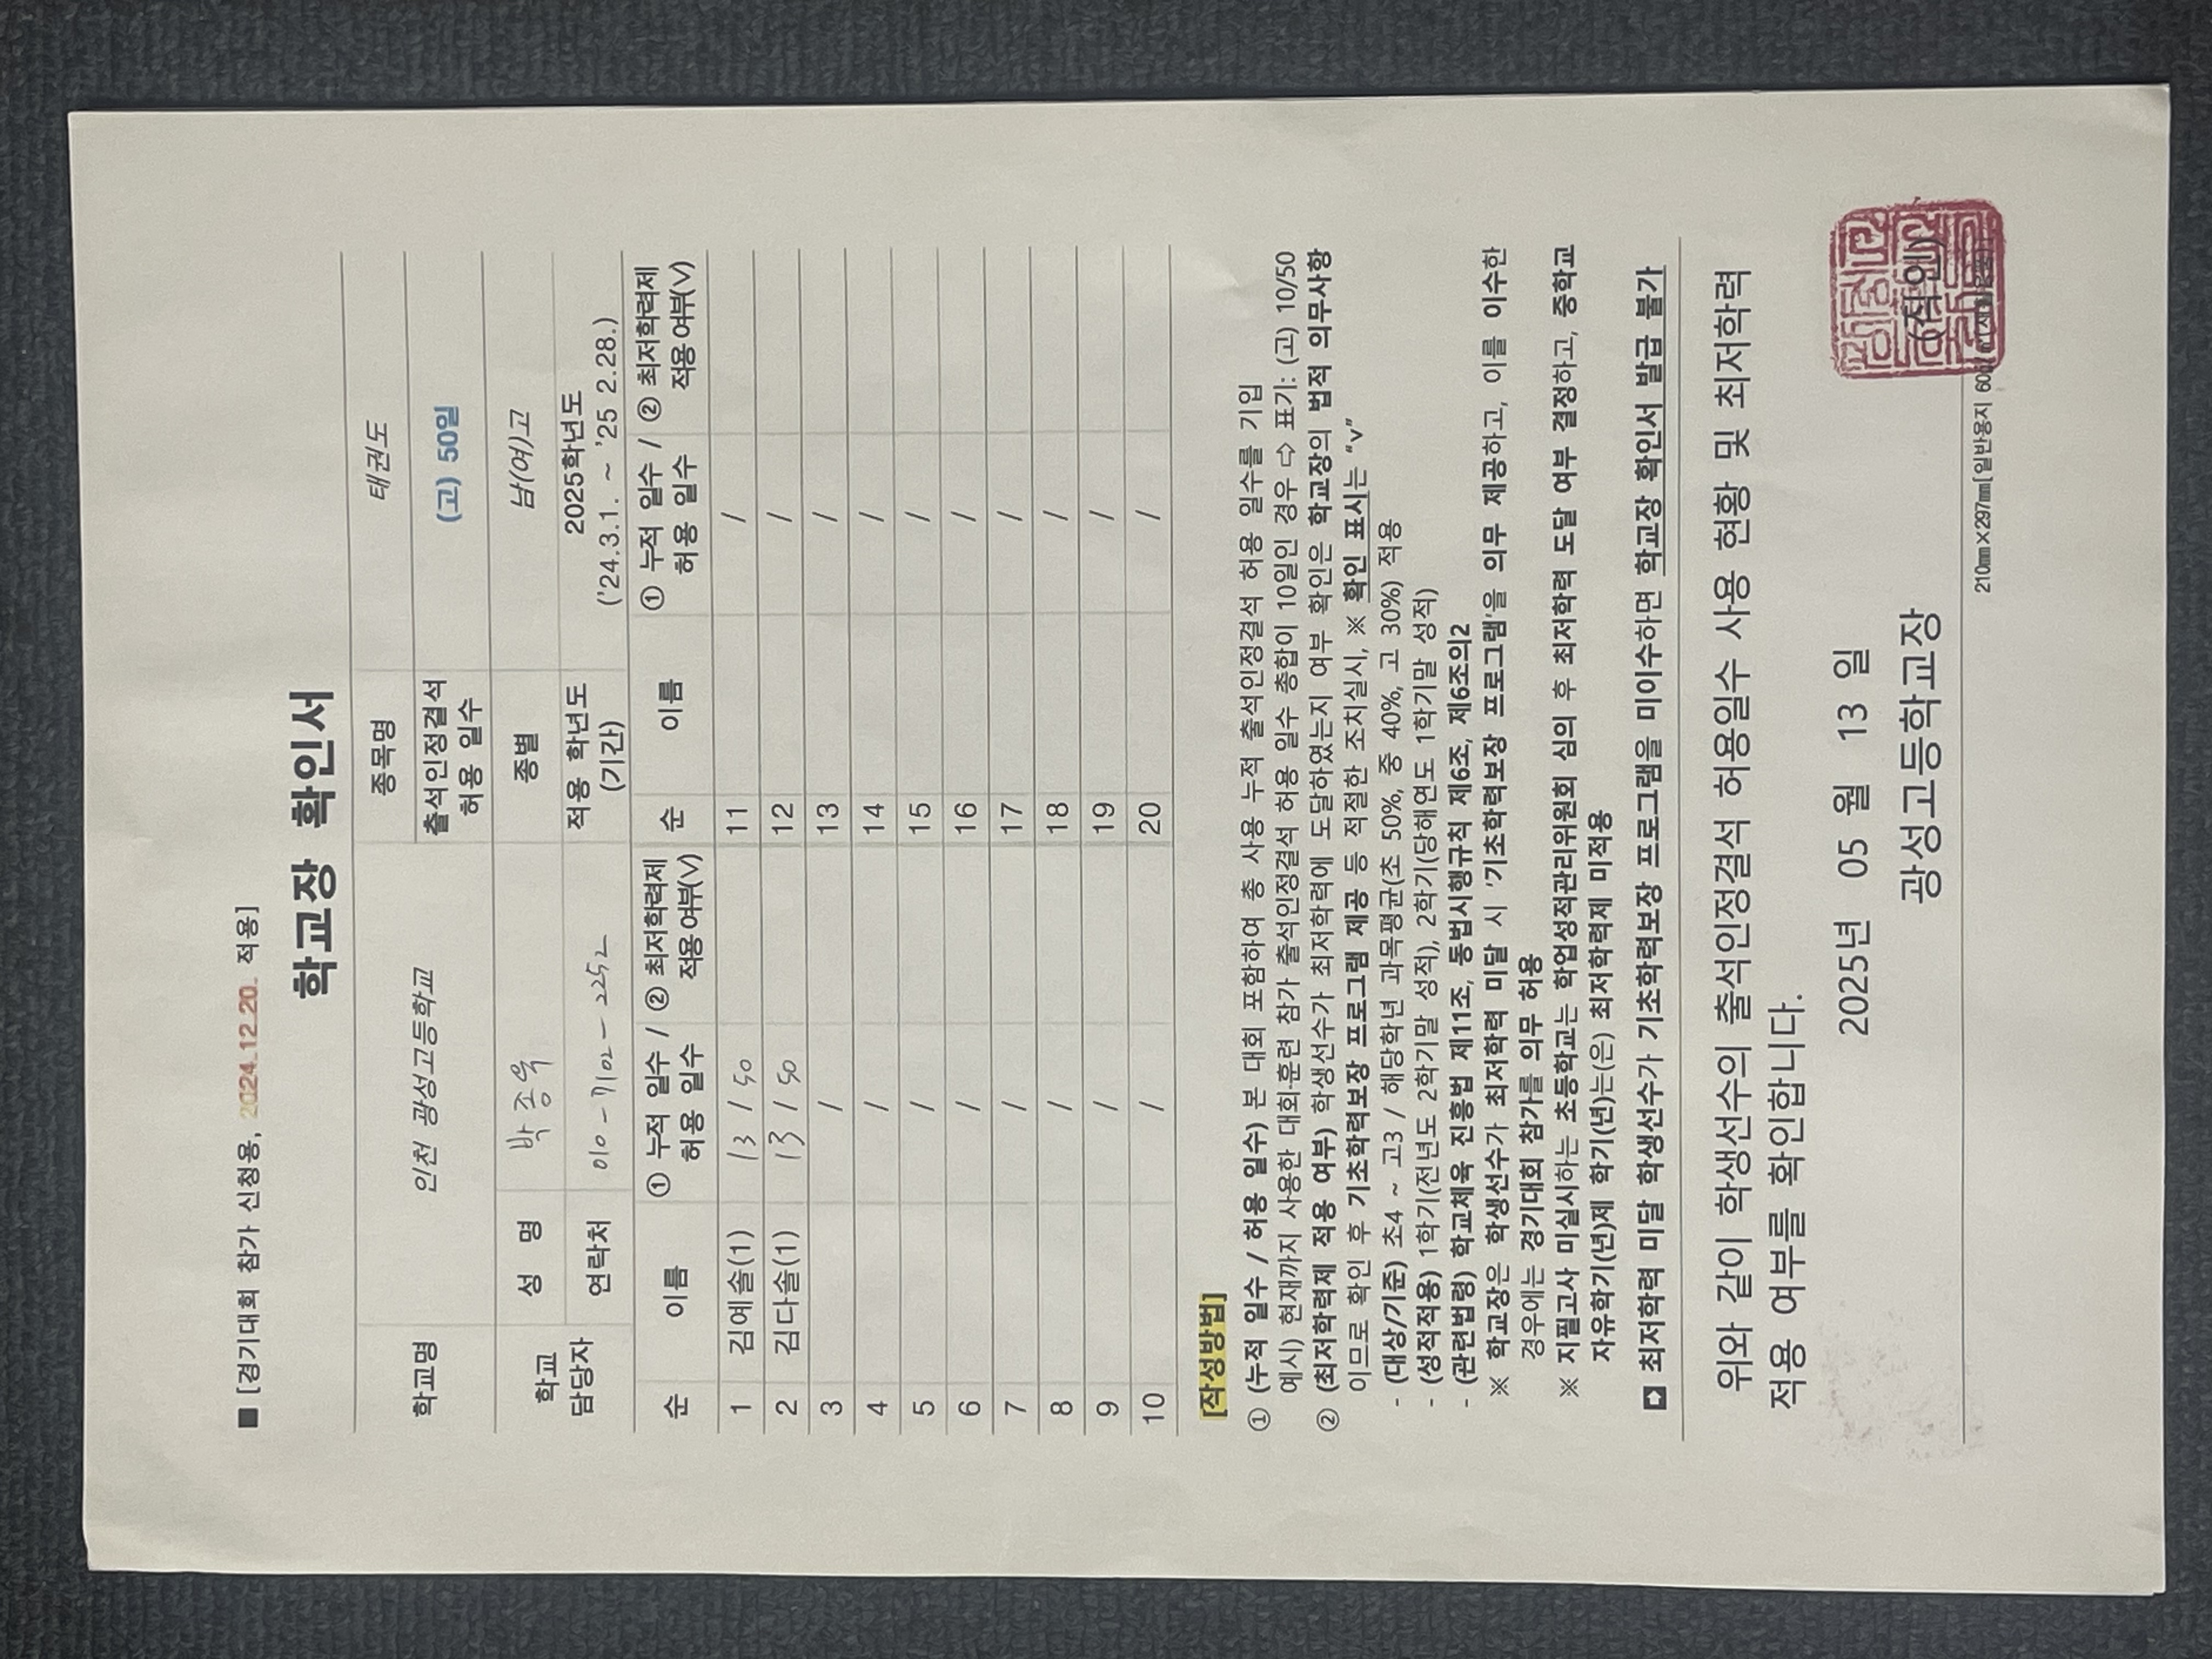 ■ [경기대회 참가 신청용, 2024.12.20. 적용]
학교장 확인서
학교명 인천 광성고등학교 종목명 태권도
출석인정결석 허용 일수 (고) 50일
학교 담당자 성 명 박종욱 종별 남(여)고
연락처 010-7102-2252 적용 학년도 (기간) 2025학년도 ('24.3.1. ~ '25 2.28.)
순 이름 ① 누적 일수 / 허용 일수 ② 최저학력제 적용여부(V) 순 이름 ① 누적 일수 / 허용 일수 ② 최저학력제 적용여부(V)
1 김예솔(1) 13 / 50 11 /
2 김다솔(1) 13 / 50 12 /
3 / 13 /
4 / 14 /
5 / 15 /
6 / 16 /
7 / 17 /
8 / 18 /
9 / 19 /
10 / 20 /
[작성방법]
① (누적 일수 / 허용 일수) 본 대회 포함하여 총 사용 누적 출석인정결석 허용 일수를 기입
예시) 현재까지 사용한 대회·훈련 참가 출석인정결석 허용 일수 총합이 10일인 경우 ⇨ 표기: (고) 10/50
② (최저학력제 적용 여부) 학생선수가 최저학력에 도달하였는지 여부 확인은 학교장의 법적 의무사항
이므로 확인 후 기초학력보장 프로그램 제공 등 적절한 조치실시, ※ 확인 표시는 "v"
- (대상/기준) 초4 ~ 고3 / 해당학년 과목평균(초 50%, 중 40%, 고 30%) 적용
- (성적적용) 1학기(전년도 2학기말 성적), 2학기(당해연도 1학기말 성적)
- (관련법령) 학교체육 진흥법 제11조, 동법시행규칙 제6조, 제6조의2
※ 학교장은 학생선수가 최저학력 미달 시 '기초학력보장 프로그램'을 의무 제공하고, 이를 이수한
경우에는 경기대회 참가를 의무 허용
※ 지필고사 미실시하는 초등학교는 학업성적관리위원회 심의 후 최저학력 도달 여부 결정하고, 중학교
자유학기(년)제 학기(년)는(은) 최저학력제 미적용
➲ 최저학력 미달 학생선수가 기초학력보장 프로그램을 미이수하면 학교장 확인서 발급 불가
위와 같이 학생선수의 출석인정결석 허용일수 사용 현황 및 최저학력
적용 여부를 확인합니다.
2025년 05 월 13 일
광성고등학교장 (직인)
210㎜×297㎜[일반용지 60g/㎡(재활용품)]